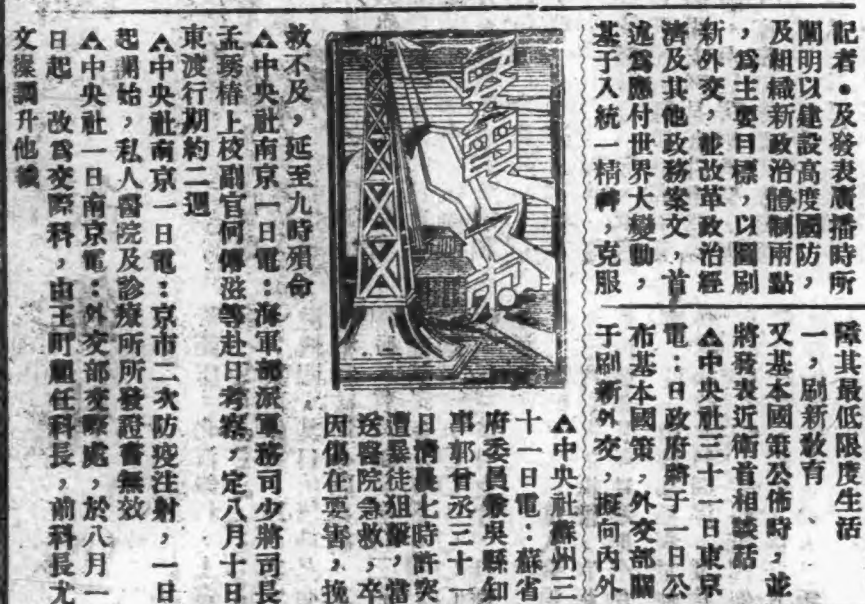 記者●及發表廣播時所
闡明以建設高度國防，
及組織新政治體制兩點
，爲主要目標，以圖刷
新外交，並改革政治經
濟及其他政務案文，首
述爲應付世界大變動，
基于入統一精神，克服
障其最低限度生活
一，刷新敎育、
又基本國策公佈時，並
將發表近衛首相談話
▲中央社三十一日東京
電：日政府將于一日公
布基本國策，外交部關
于刷新外交，擬向內外
▲中央社蘇州三
十一日電：蘇省
府委員兼吳縣知
事郭曾丞三十一
日清晨七時許突
遭暴徒狙擊，當
送醫院急救，卒
因傷在要害，挽
救不及，延至九時殞命
▲中央社南京一日電：海軍部派軍務司少將司長
孟琇椿上校副官何傳滋等赴日考察，定八月十日
東渡行期約二週
▲中央社南京一日電：京市二次防疫注射，一日
起開始，私人醫院及診療所所發證書無效
▲中央社一日南京電：外交部交際處，於八月一
日起　改爲交際科，由王町題任科長，前科長尤
文藻調升他職